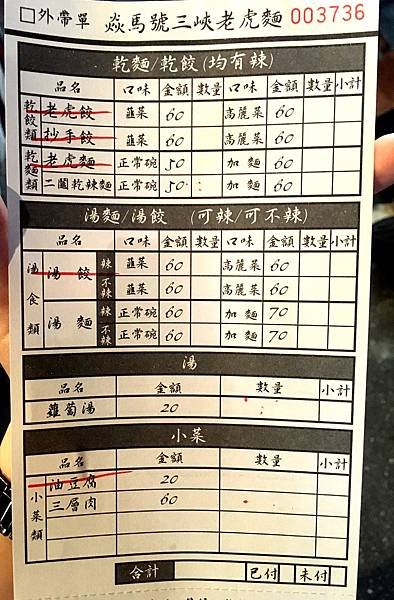 □外帶單 焱馬號三峽老虎麵 003736
乾麵/乾餃(均有辣)
品名 口味 金額 數量 口味 金額 數量 小計
乾餃類 老虎餃 韮菜 60 高麗菜 60
抄手餃 韮菜 60 高麗菜 60
乾麵類 老虎麵 正常碗 50 加麵 60
二闆乾辣麵 正常碗 50 加麵 60
湯麵/湯餃 (可辣/可不辣)
品名 口味 金額 數量 口味 金額 數量 小計
湯食類 湯餃 辣 韮菜 60 高麗菜 60
不辣 韮菜 60 高麗菜 60
湯麵 辣 正常碗 60 加麵 70
不辣 正常碗 60 加麵 70
湯
品名 金額 數量 小計
蘿蔔湯 20
小菜
品名 金額 數量 小計
小菜類 油豆腐 20
三層肉 60
合計 已付 未付